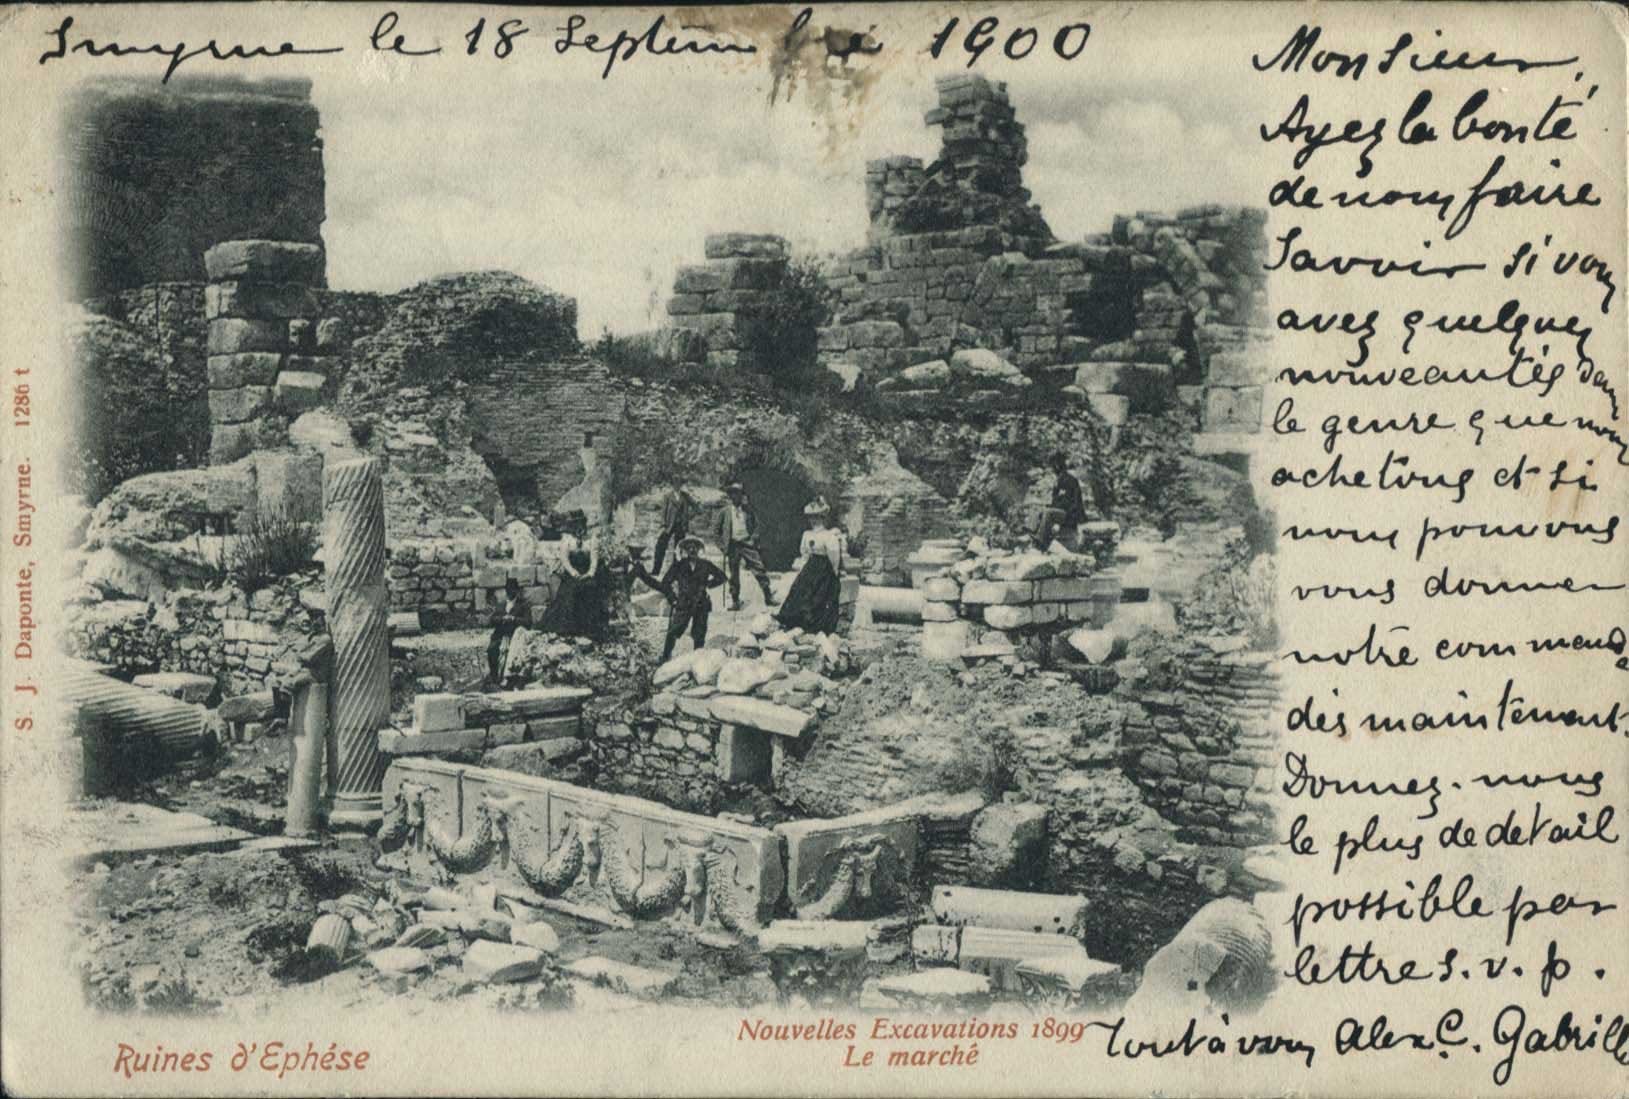 Smyrne le 18 Septembre 1900
Monsieur,
Ayez la bonté
de nous faire
savoir si vous
avez quelques
nouveautés dans
le genre que nous
achetons et si
nous pouvons
vous donner
notre commande
dès maintenant.
Donnez-nous
le plus de detail
possible par
lettre s.v.p.
Tout à vous Alex C. Gabrill
S. J. Daponte, Smyrne. 1286 t
Ruines d'Ephése
Nouvelles Excavations 1899
Le marché